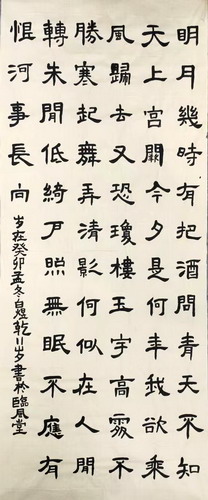 明月幾時有把酒問青天不知
天上宮闕今夕是何年我欲乘
風歸去又恐瓊樓玉宇高處不
勝寒起舞弄清影何似在人間
轉朱閣低綺戶照無眠不應有
恨何事長向
岁在癸卯孟冬白煜乾夕書於臨風堂